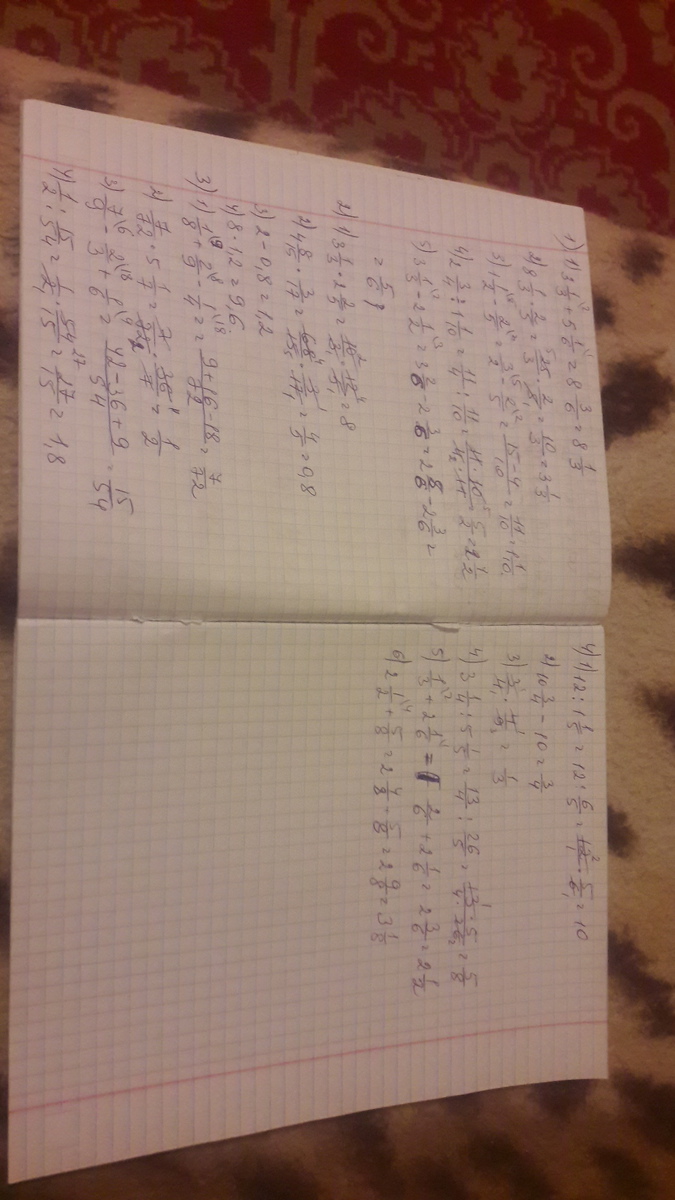 1) 1) 3 1/3 + 5 1/6 = 8 3/6 = 8 1/3
2) 8 1/3 · 2/5 = 25/3 · 2/5 = 10/3 = 3 1/3
3) 1 1/2 - 2/5 = 3/2 - 2/5 = 15-4/10 = 11/10 = 1 1/10
4) 2 3/4 : 1 1/10 = 11/4 : 11/10 = 11·10/4·11 = 5/2 = 2 1/2
5) 3 1/3 - 2 1/2 = 3 2/6 - 2 3/6 = 2 8/6 - 2 3/6 =
= 5/6
2) 1) 3 1/5 · 2 = 8
2) 4 8/15 · 3/17 = 68/15 · 3/17 = 4/5 = 0,8
3) 2 - 0,8 = 1,2
4) 8 · 1,2 = 9,6
3) 1) 1/8 + 2/9 - 1/4 = 9+16-18/72 = 7/72
2) 7/72 · 5 1/7 = 7/72 · 36/7 = 1/2
3) 7/9 - 2/3 + 1/6 = 42-36+9/54 = 15/54
4) 1/2 : 15/54 = 1/2 · 54/15 = 27/15 = 1,8
4) 1) 12 : 1 1/5 = 12 : 6/5 = 12 · 5/6 = 10
2) 10 3/4 - 10 = 3/4
3) 3/4 · 4/9 = 1/3
4) 3 1/4 : 5 1/5 = 13/4 : 26/5 = 13·5/4·26 = 5/8
5) 1/3 + 2 1/6 = 2/6 + 2 1/6 = 2 3/6 = 2 1/2
6) 2 1/2 + 5/8 = 2 4/8 + 5/8 = 2 9/8 = 3 1/8